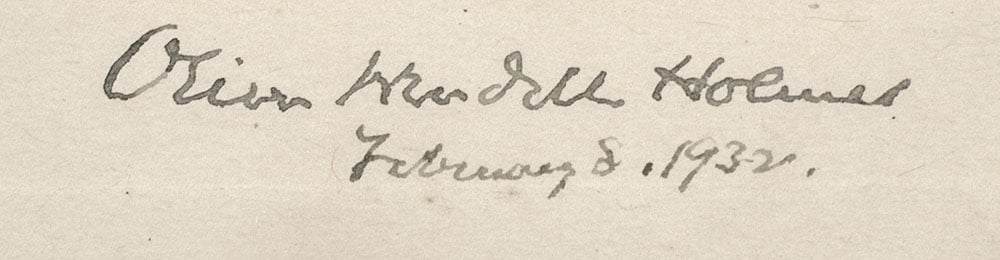 Oliver Wendell Holmes
February 8. 1932.